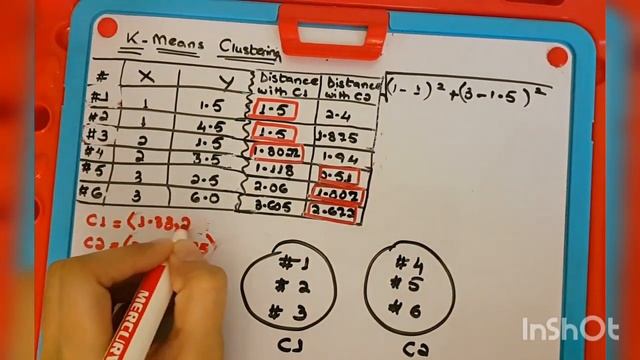 K-Means Clustering
# X Y Distance with C1 Distance with C2
#1 1 1.5 1.5 2.4
#2 1 4.5 1.5 1.875
#3 2 1.5 1.8027 1.94
#4 2 3.5 1.118
#5 3 2.5 2.06 1.007
#6 3 6.0 3.605 2.672
√(1-1)² + (3-1.5)²
C1 = (1.33,2
C2 = (
#1
#2
#3
C1
#4
#5
#6
C2
MERCURY
InShOt